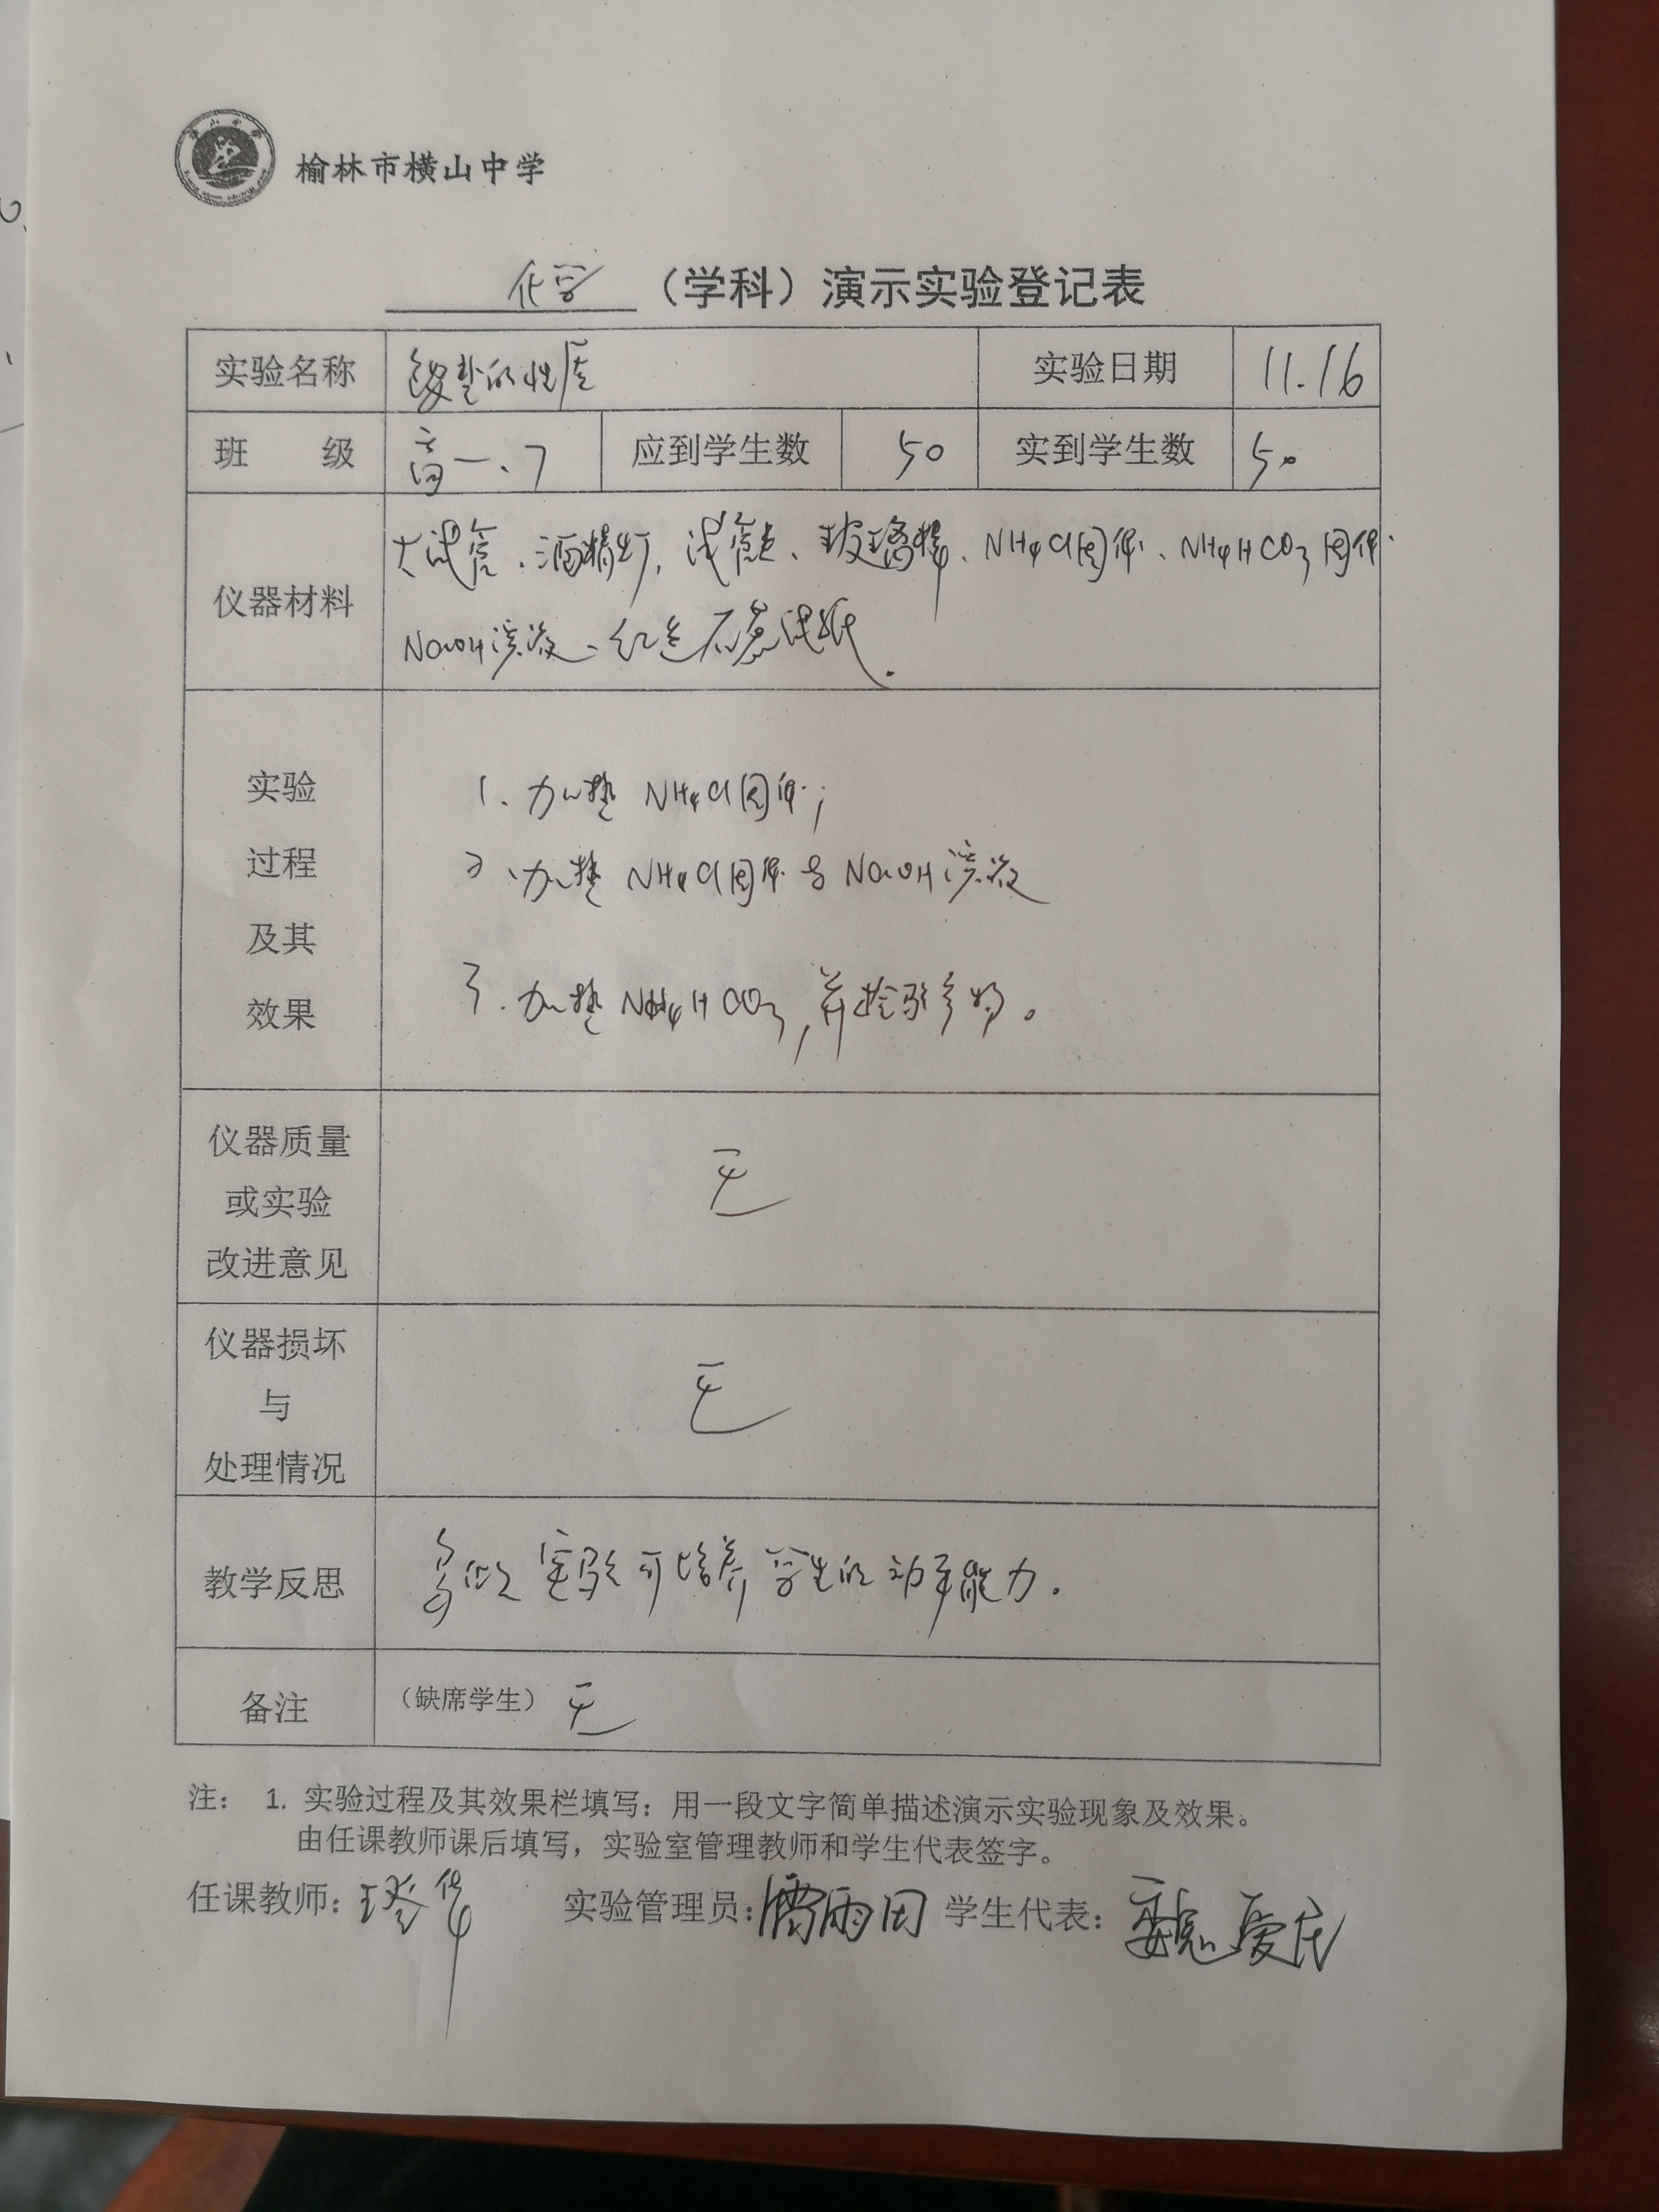 榆林市横山中学
化学（学科）演示实验登记表
实验名称 铵盐的性质 实验日期 11.16
班 级 高一.7 应到学生数 50 实到学生数 50
仪器材料
大试管、酒精灯、试管夹、玻璃棒、NH4Cl固体、NH4HCO3固体
NaOH溶液、红色石蕊试纸.
实验
过程
及其
效果
1.加热 NH4Cl固体；
2、加热 NH4Cl固体与NaOH溶液
3.加热 NH4HCO3，并检验产物。
仪器质量
或实验
改进意见
无
仪器损坏
与
处理情况
无
教学反思 多做实验可培养学生的动手能力.
备注 （缺席学生）无
注： 1. 实验过程及其效果栏填写：用一段文字简单描述演示实验现象及效果。
由任课教师课后填写，实验室管理教师和学生代表签字。
任课教师： 实验管理员： 雨田 学生代表： 魏